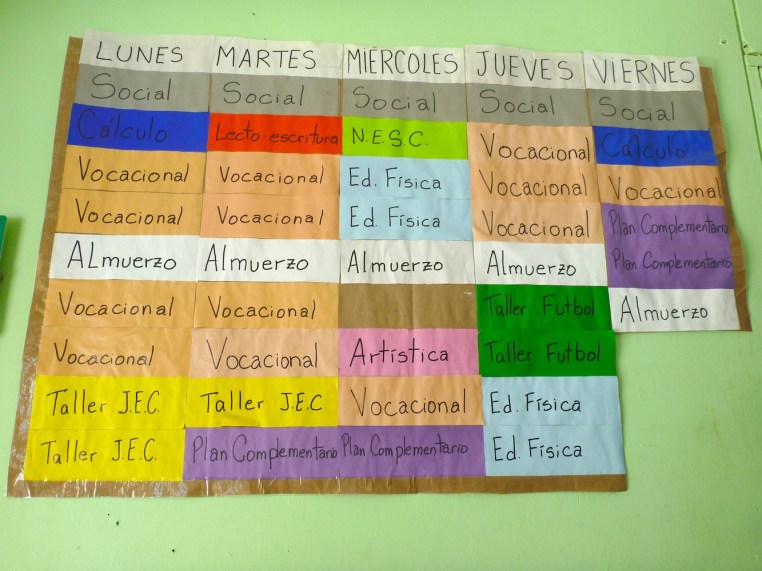 LUNES MARTES MIÉRCOLES JUEVES VIERNES
Social Social Social Social Social
Cálculo Lecto-escritura N.E.S.C. Vocacional Cálculo
Vocacional Vocacional Ed. Física Vocacional Vocacional
Vocacional Vocacional Ed. Física Vocacional Plan Complementario
ALmuerzo Almuerzo Almuerzo Almuerzo Plan Complementario
Vocacional Vocacional Taller: Futbol Almuerzo
Vocacional Vocacional Artística Taller: Futbol
Taller J.E.C. Taller J.E.C Vocacional Ed. Física
Taller J.E.C. Plan Complementario Plan Complementario Ed. Física